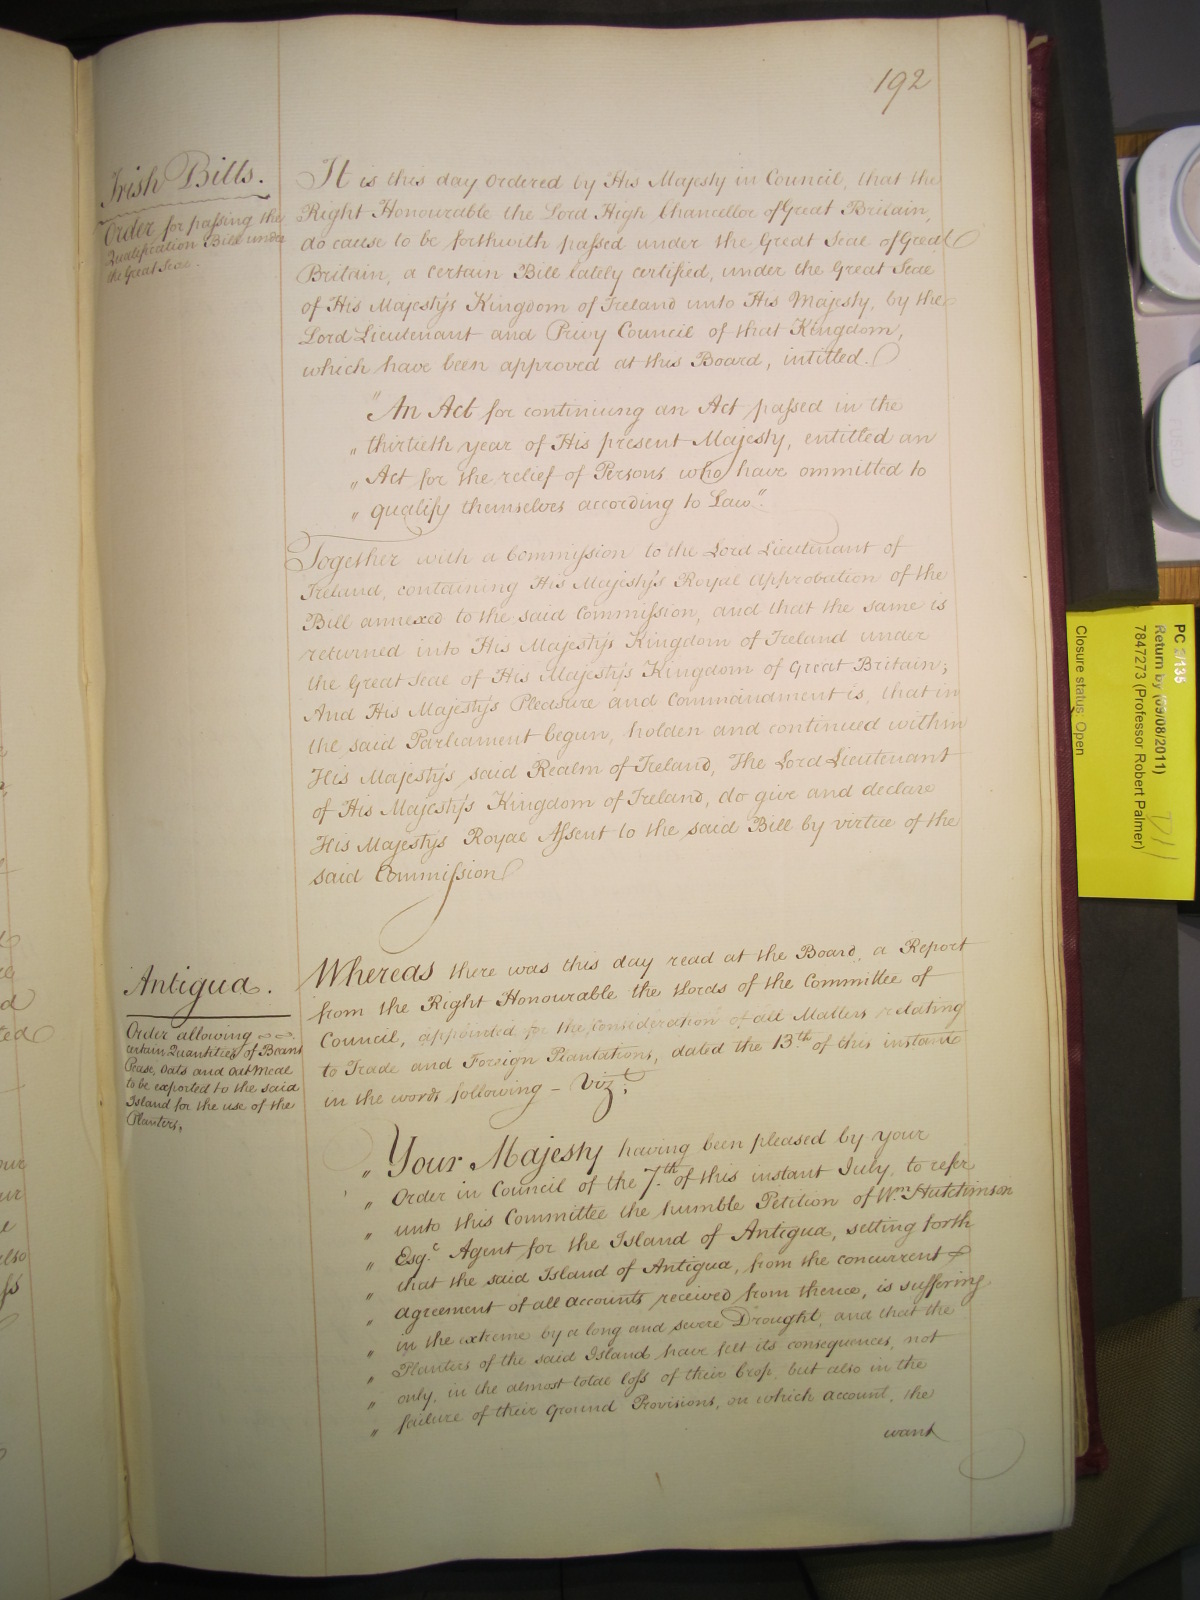 192
Irish Bills.
Order for passing the
Qualification Bill under
the Great Seal.
It is this day Ordered by His Majesty in Council, that the
Right Honourable the Lord High Chancellor of Great Britain,
do cause to be forthwith passed under the Great Seal of Great
Britain, a certain Bill lately certified, under the Great Seal
of His Majesty's Kingdom of Ireland unto His Majesty, by the
Lord Lieutenant and Privy Council of that Kingdom,
which have been approved at this Board, intitled.
"An Act for continuing an Act passed in the
" thirtieth year of His present Majesty, entitled an
" Act for the relief of Persons who have ommitted to
" qualify themselves according to Law".
Together with a Commission to the Lord Lieutenant of
Ireland, containing His Majesty's Royal Approbation of the
Bill annexed to the said Commission, and that the same is
returned into His Majesty's Kingdom of Ireland under
the Great Seal of His Majesty's Kingdom of Great Britain;
And His Majesty's Pleasure and Commandment is, that in
the said Parliament begun, holden and continued within
His Majesty's said Realm of Ireland, The Lord Lieutenant
of His Majesty's Kingdom of Ireland, do give and declare
His Majesty's Royal Assent to the said Bill by virtue of the
said Commission
Antigua.
Order allowing
certain Quantities of Beans
Pease, Oats and Oatmeal
to be exported to the said
Island for the use of the
Planters.
Whereas there was this day read at the Board, a Report
from the Right Honourable the Lords of the Committee of
Council, appointed for the consideration of all Matters relating
to Trade and Foreign Plantations, dated the 13th of this instant
in the words following – Vizt
" Your Majesty having been pleased by your
" Order in Council of the 7th of this instant July, to refer
" unto this Committee the humble Petition of Wm Hutchinson
" Esqr Agent for the Island of Antigua, setting forth
" that the said Island of Antigua, from the concurrent
" agreement of all accounts received from thence, is suffering
" in the extreme by a long and severe Drought, and that the
" Planters of the said Island have felt its consequences, not
" only, in the almost total loss of their Crop, but also in the
" failure of their Ground Provisions, on which account, the
want
PC 2/135
Return by (09/08/2011)
7847273 (Professor Robert Palmer)
Closure status: Open
D11